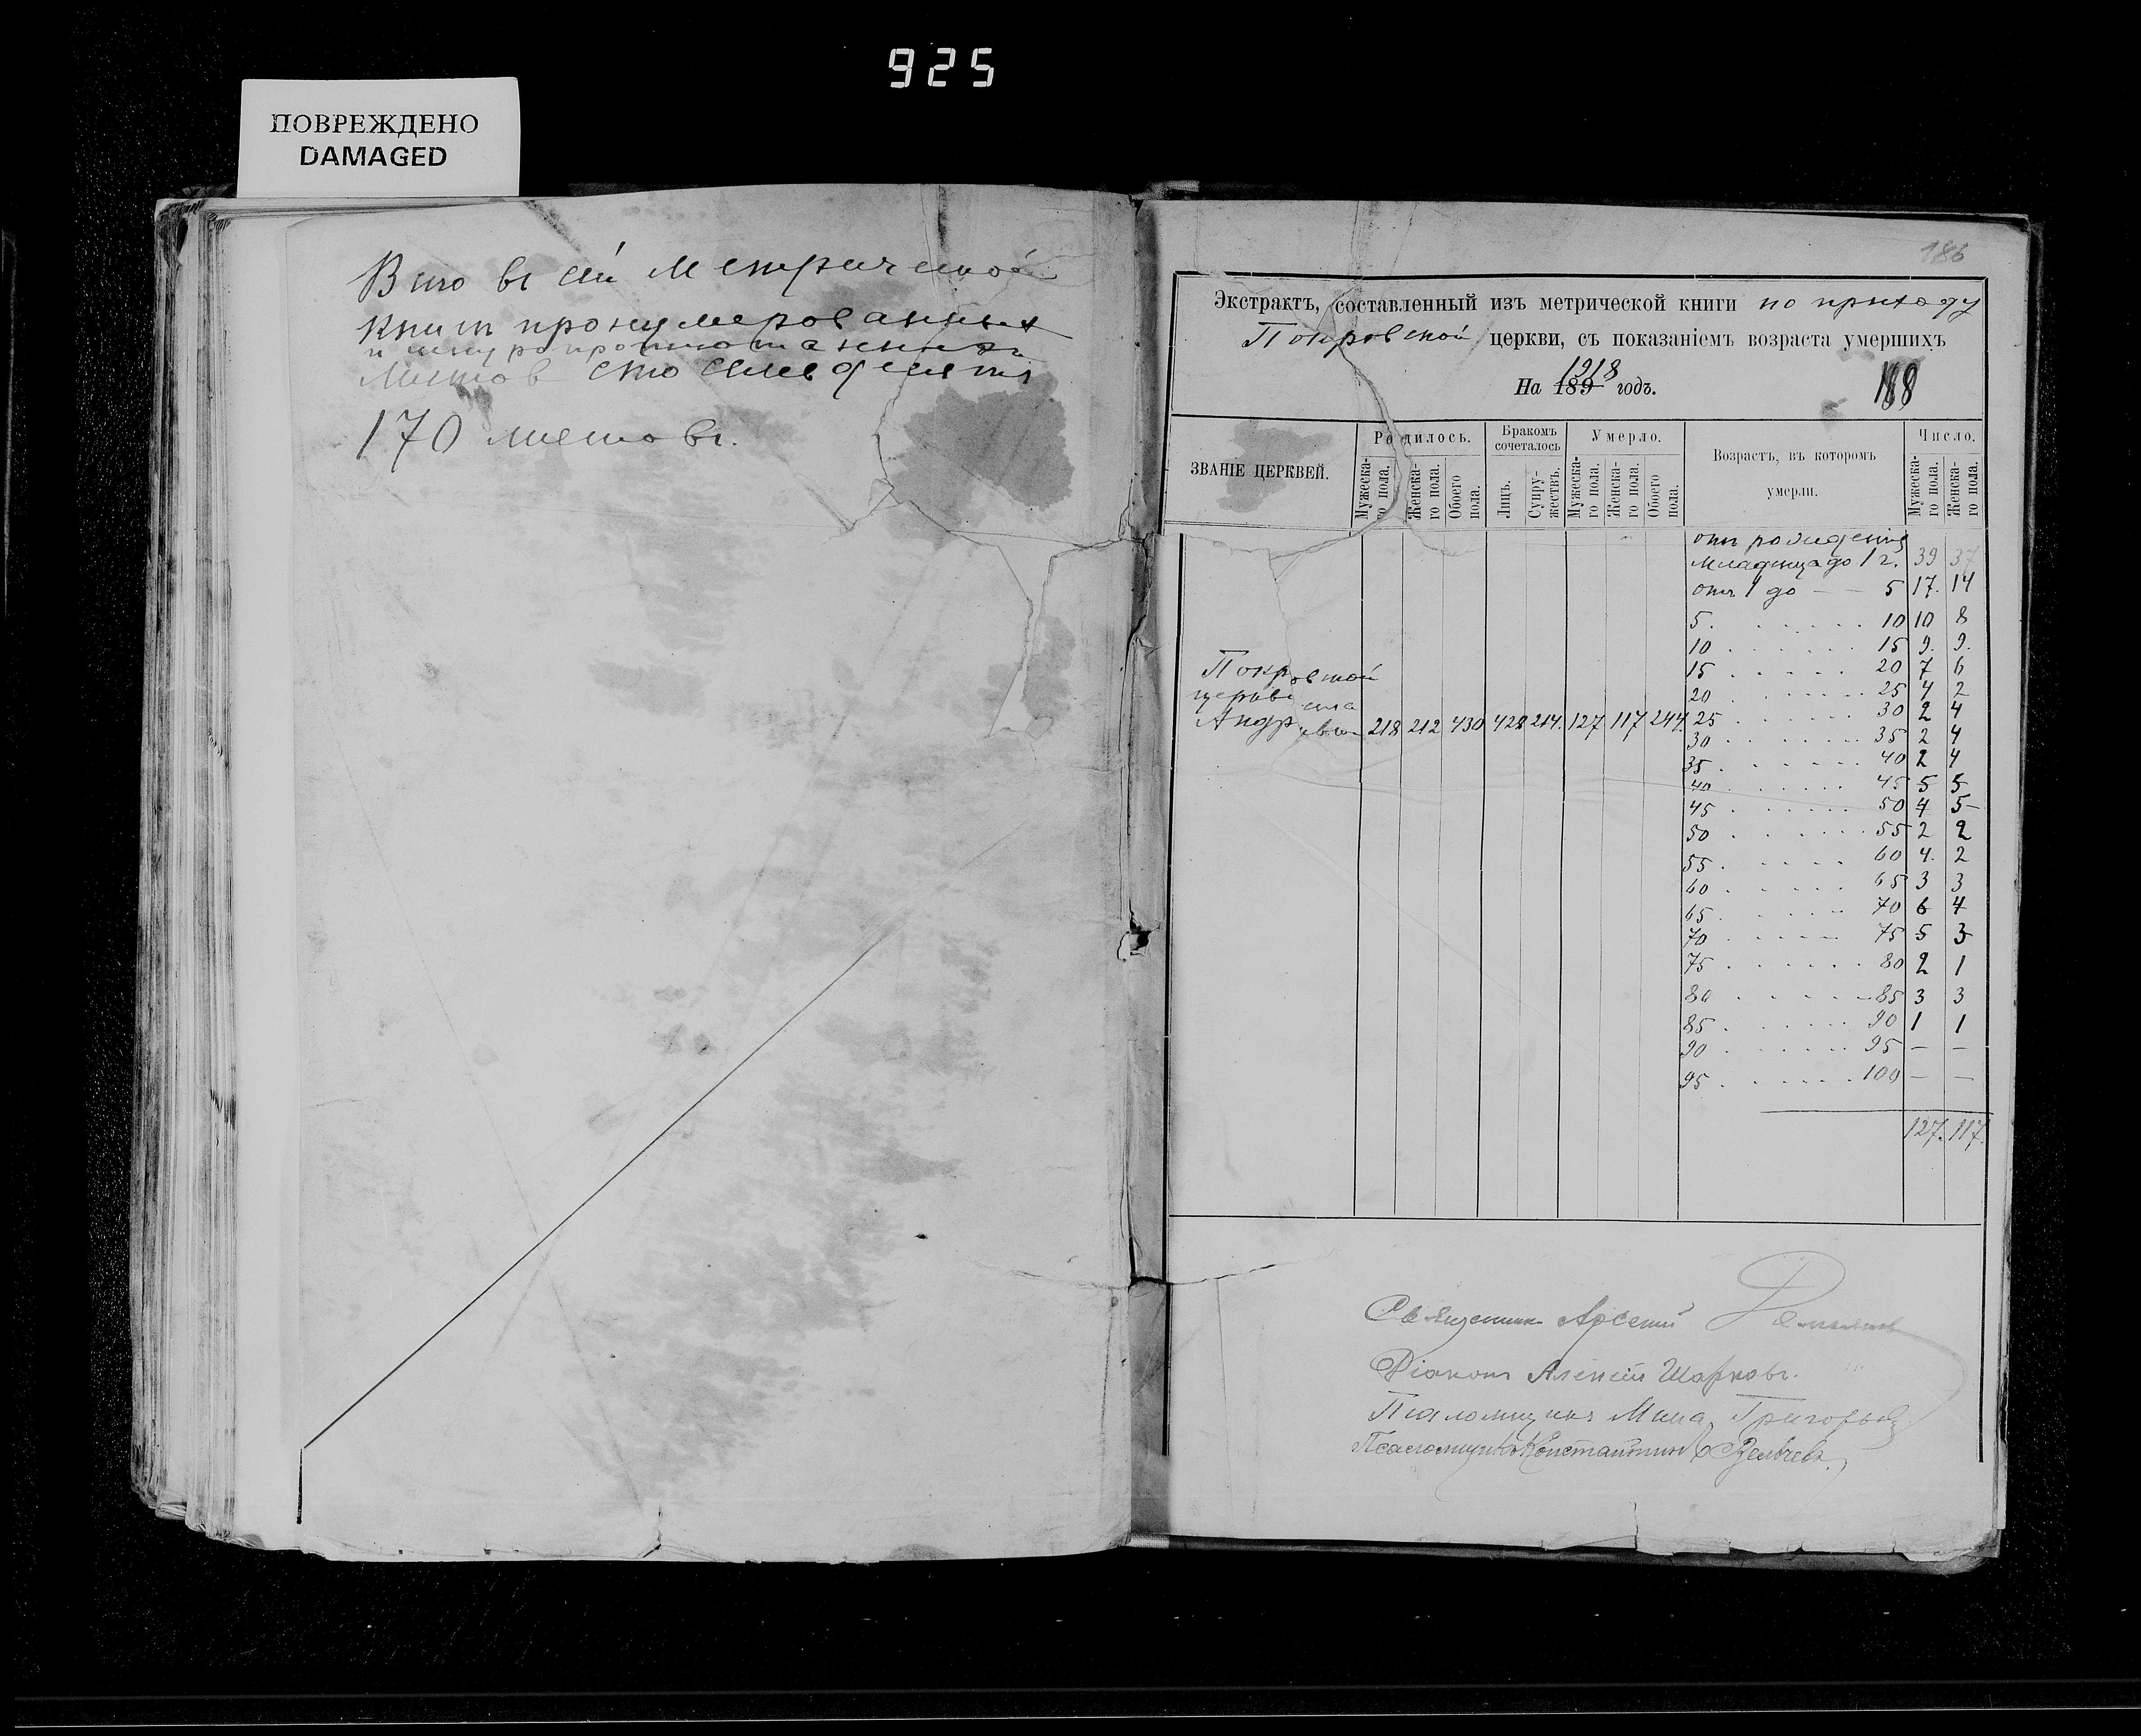 925
ПОВРЕЖДЕНО
DAMAGED
Всго въ сей Метрической
книги пронумерованных
и шнуропрошнованных
Листов сто семьдесят
170 листовъ.
183
Экстрактъ, составленный изъ метрической книги по приходу
Покровской церкви, съ показаніемъ возраста умершихъ
1918
На 189 годъ.
188
ЗВАНІЕ ЦЕРКВЕЙ.
Родилось.
Бракомъ сочеталось
Умерло.
Возрастъ, въ которомъ умерли.
Число.
Мужеска-го пола.
Женска-го пола.
Обоего пола.
Лицъ.
Супру-жествъ.
Мужеска-го пола.
Женска-го пола.
Обоего пола.
Мужеска-го пола.
Женска-го пола.
отъ рожденія
младенца до 1 г. 39 37
отъ 1 до — — 5 17. 14
5. . . . . . . 10 10 8
10 . . . . . . 15 9. 9.
15 . . . . . . 20 7 6
20 . . . . . . 25 4 2
25 . . . . . . 30 2 4
30 . . . . . . 35 2 4
35 . . . . . . 40 2 4
40 . . . . . . 45 5 5
45 . . . . . . 50 4 5
50 . . . . . . 55 2 2
55 . . . . . . 60 4. 2
60 . . . . . . 65 3 3
65 . . . . . . 70 6 4
70 . . . . . . 75 5 3
75 . . . . . . 80 2 1
80 . . . . . . 85 3 3
85 . . . . . . 90 1 1
90 . . . . . . 95 — —
95 . . . . . . 100 — —
127. 117.
Покровской
церкви села
218 212 430 428 214. 127 117 244.
Священник Арсений
Діаконъ Алексій Шарковъ.
Псаломщикъ Мина Григорьев
Псаломщикъ Константинъ